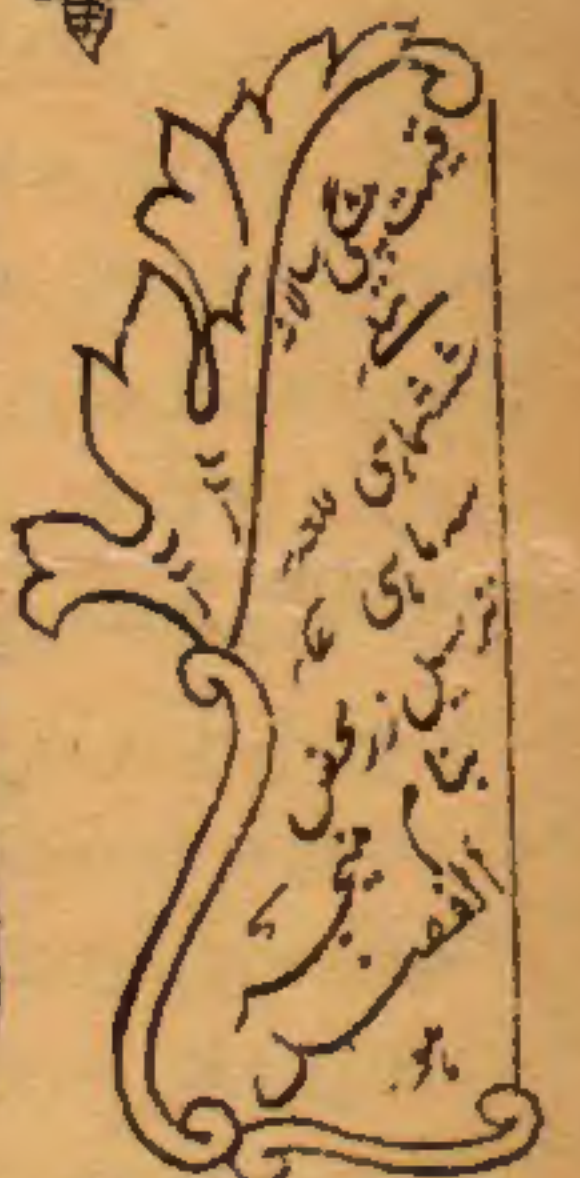 قیمت پیشگی سالانہ
ششماہی للعہ
سہ ماہی عہ
ترسیل زر محض
بنام منیجر
الفضل ہو